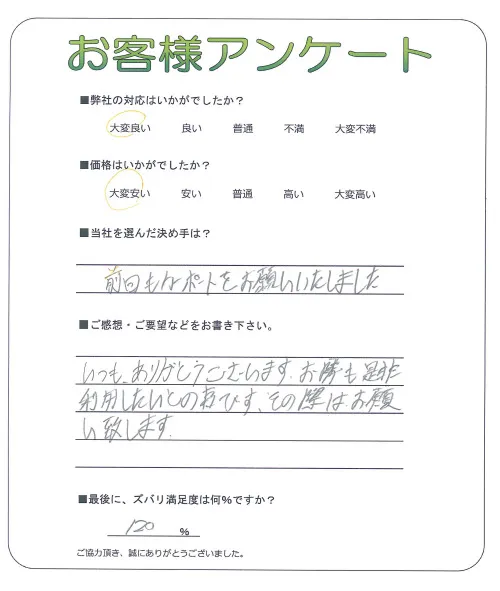 お客様アンケート
■弊社の対応はいかがでしたか?
大変良い 良い 普通 不満 大変不満
■価格はいかがでしたか?
大変安い 安い 普通 高い 大変高い
■当社を選んだ決め手は?
前回もポートをお願いいたしました
■ご感想・ご要望などをお書き下さい。
いつも、ありがとうございます。お隣も是非
利用したいとの事です、その際はお願
い致します。
■最後に、ズバリ満足度は何%ですか?
120 %
ご協力頂き、誠にありがとうございました。